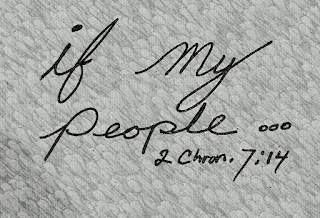 if my
people...
2 Chron. 7:14